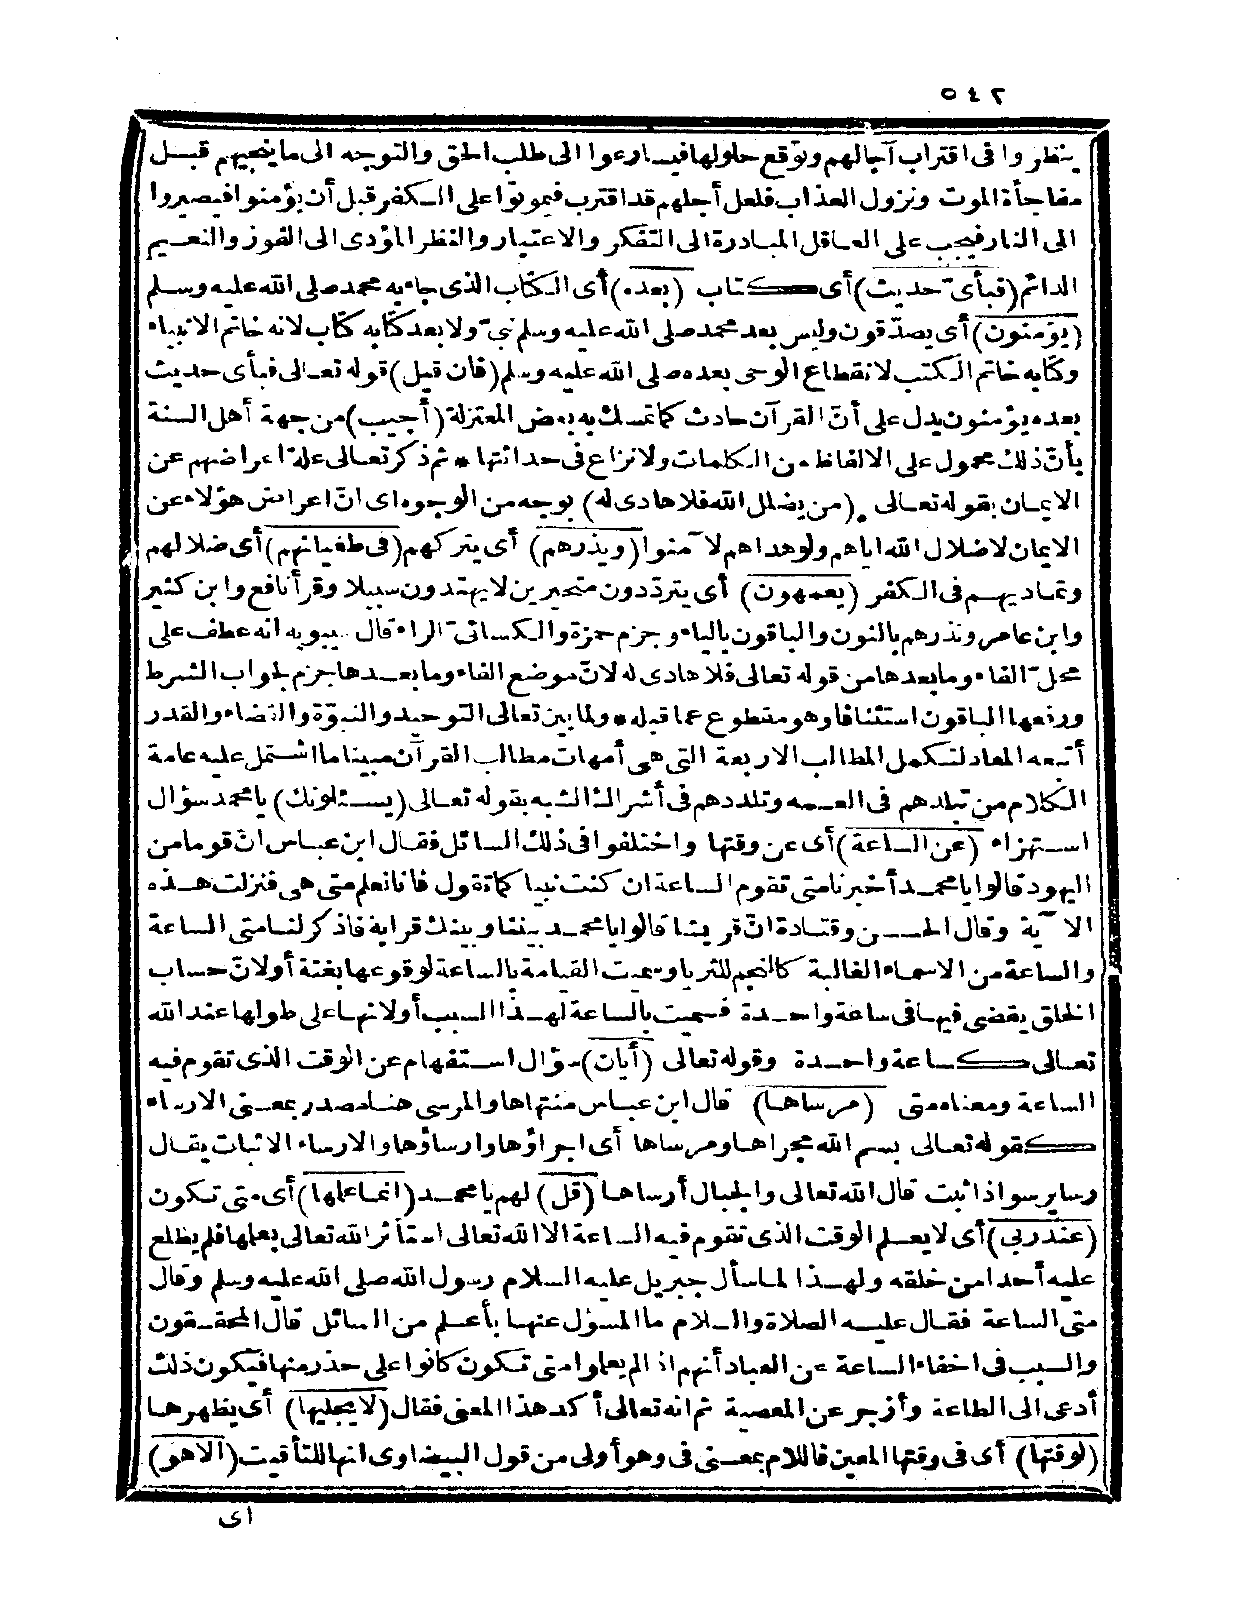 ٥٤٢
ينظروا فى اقتراب آجالهم وتوقع حلولها فيسارعوا الى طلب الحق والتوجه الى ما ينجيهم قبل
مفاجأة الموت ونزول العذاب فلعل أجلهم قد اقترب فيموتوا على الكفر قبل أن يؤمنوا فيصيروا
الى النار فيجب على العاقل المبادرة الى التفكر والاعتبار والنظر المؤدى الى الفوز والنعيم
الدائم (فبأى حديث) أى كتاب (بعده) أى الكتاب الذى جاء به محمد صلى الله عليه وسلم
(يؤمنون) أى يصدّقون وليس بعد محمد صلى الله عليه وسلم نبىّ ولا بعد كتابه كتاب لانه خاتم الانبياء
وكتابه خاتم الكتب لانقطاع الوحى بعده صلى الله عليه وسلم (فان قيل) قوله تعالى فبأى حديث
بعده يؤمنون يدل على أنّ القرآن حادث كما تمسك به بعض المعتزلة (أجيب) من جهة أهل السنة
بأنّ ذلك محمول على الالفاظ من الكلمات ولا نزاع فى حداثتها * ثم ذكر تعالى علة اعراضهم عن
الايمان بقوله تعالى (من يضلل الله فلا هادى له) بوجه من الوجوه اى انّ اعراض هؤلاء عن
الايمان لاضلال الله اياهم ولو هداهم لآمنوا (ويذرهم) أى يتركهم (فى طغيانهم) أى ضلالهم
وتماديهم فى الكفر (يعمهون) أى يتردّدون متحيرين لا يهتدون سبيلا وقرأ نافع وابن كثير
وابن عامر ونذرهم بالنون والباقون بالياء وجزم حمزة والكسائى الراء قال سيبويه انه عطف على
محلّ الفاء وما بعدها من قوله تعالى فلا هادى له لانّ موضع الفاء وما بعدها جزم لجواب الشرط
ورفعها الباقون استئنافا وهو مقطوع عما قبله * ولما بين تعالى التوحيد والنبوّة والقضاء والقدر
أتبعه المعاد لتكمل المطالب الاربعة التى هى أمهات مطالب القرآن مبينا ما اشتمل عليه عامة
الكلام من تبلدهم فى العمه وتلددهم فى أشراك الشبه بقوله تعالى (يسئلونك) يا محمد سؤال
استهزاء (عن الساعة) أى عن وقتها واختلفوا فى ذلك السائل فقال ابن عباس انّ قوما من
اليهود قالوا يا محمد أخبرنا متى تقوم الساعة ان كنت نبيا كما تقول فانا نعلم متى هى فنزلت هذه
الآية وقال الحسن وقتادة انّ قريشا قالوا يا محمد بيننا وبينك قرابة فاذكر لنا متى الساعة
والساعة من الاسماء الغالبة كالنجم للثريا وسميت القيامة بالساعة لوقوعها بغتة أولانّ حساب
الخلق يقضى فيها فى ساعة واحدة فسميت بالساعة لهذا السبب أولانها على طولها عند الله
تعالى كساعة واحدة وقوله تعالى (أيان) سؤال استفهام عن الوقت الذى تقوم فيه
الساعة ومعناه متى (مرساها) قال ابن عباس منتهاها والمرسى هنا مصدر بمعنى الارساء
كقوله تعالى بسم الله مجراها ومرساها أى اجراؤها وارساؤها والارساء الاثبات يقال
رسا يرسو اذا ثبت قال الله تعالى والجبال أرساها (قل) لهم يا محمد (انما علمها) أى متى تكون
(عند ربى) أى لا يعلم الوقت الذى تقوم فيه الساعة الا الله تعالى استأثر الله تعالى بعلمها فلم يطلع
عليه أحدا من خلقه ولهذا لما سأل جبريل عليه السلام رسول الله صلى الله عليه وسلم وقال
متى الساعة فقال عليه الصلاة والسلام ما المسؤل عنها بأعلم من السائل قال المحققون
والسبب فى اخفاء الساعة عن العباد أنهم اذا لم يعلموا متى تكون كانوا على حذر منها فيكون ذلك
أدعى الى الطاعة وأزجر عن المعصية ثم انه تعالى أكد هذا المعنى فقال (لا يجليها) أى يظهرها
(لوقتها) أى فى وقتها المعين فاللام بمعنى فى وهو أولى من قول البيضاوى انها للتأقيت (الا هو)
اى